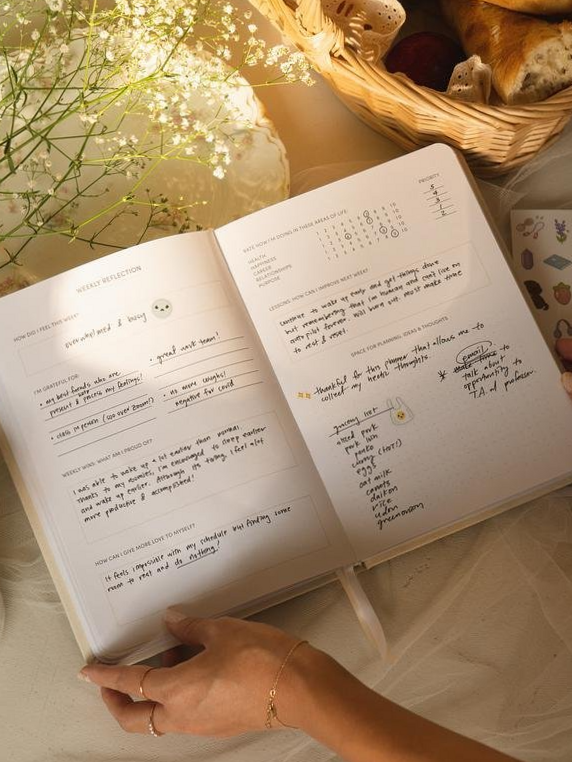 WEEKLY REFLECTION
HOW DID I FEEL THIS WEEK?
overwhelmed & busy
I'M GRATEFUL FOR:
• my best friends who are
present & process my feelings!
• class in person (soo over zoom!)
• great work team!
• no more coughs!
negative for covid
WEEKLY WINS: WHAT AM I PROUD OF?
I was able to wake up a lot earlier than normal.
thanks to my roomies, i'm encouraged to sleep earlier
and wake up earlier. Although its tiring, i feel alot
more productive & accomplished!
HOW CAN I GIVE MORE LOVE TO MYSELF?
it feels impossible with my schedule but finding some
room to rest and do nothing!
RATE HOW I'M DOING IN THESE AREAS OF LIFE
PRIORITY
HEALTH
HAPPINESS
CAREER
RELATIONSHIPS
PURPOSE
5
4
3
1
2
LESSONS: HOW CAN I IMPROVE NEXT WEEK?
continue to wake up early and get things done
but remembering that i'm human and can't live on
auto pilot forever. will burn out. must make time
to rest & reset.
SPACE FOR PLANNING, IDEAS & THOUGHTS
thankful for this planner that allows me to
collect my hectic thoughts.
email
make time to
talk about
opportunity to
T.A. w/ professor.
grocery list
sliced pork
pork loin
panko
curry (torc!)
eggs
oat milk
carrots
daikon
rice
udon
green onion